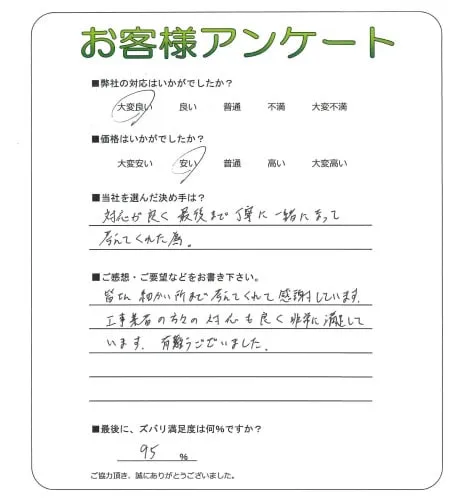 お客様アンケート
■弊社の対応はいかがでしたか？
大変良い 良い 普通 不満 大変不満
■価格はいかがでしたか？
大変安い 安い 普通 高い 大変高い
■当社を選んだ決め手は？
対応が良く最後まで丁寧に一緒になって
考えてくれた為。
■ご感想・ご要望などをお書き下さい。
皆さん細かい所まで考えてくれて感謝しています。
工事業者の方々の対応も良く非常に満足して
います。有難うございました。
■最後に、ズバリ満足度は何%ですか？
95 %
ご協力頂き、誠にありがとうございました。